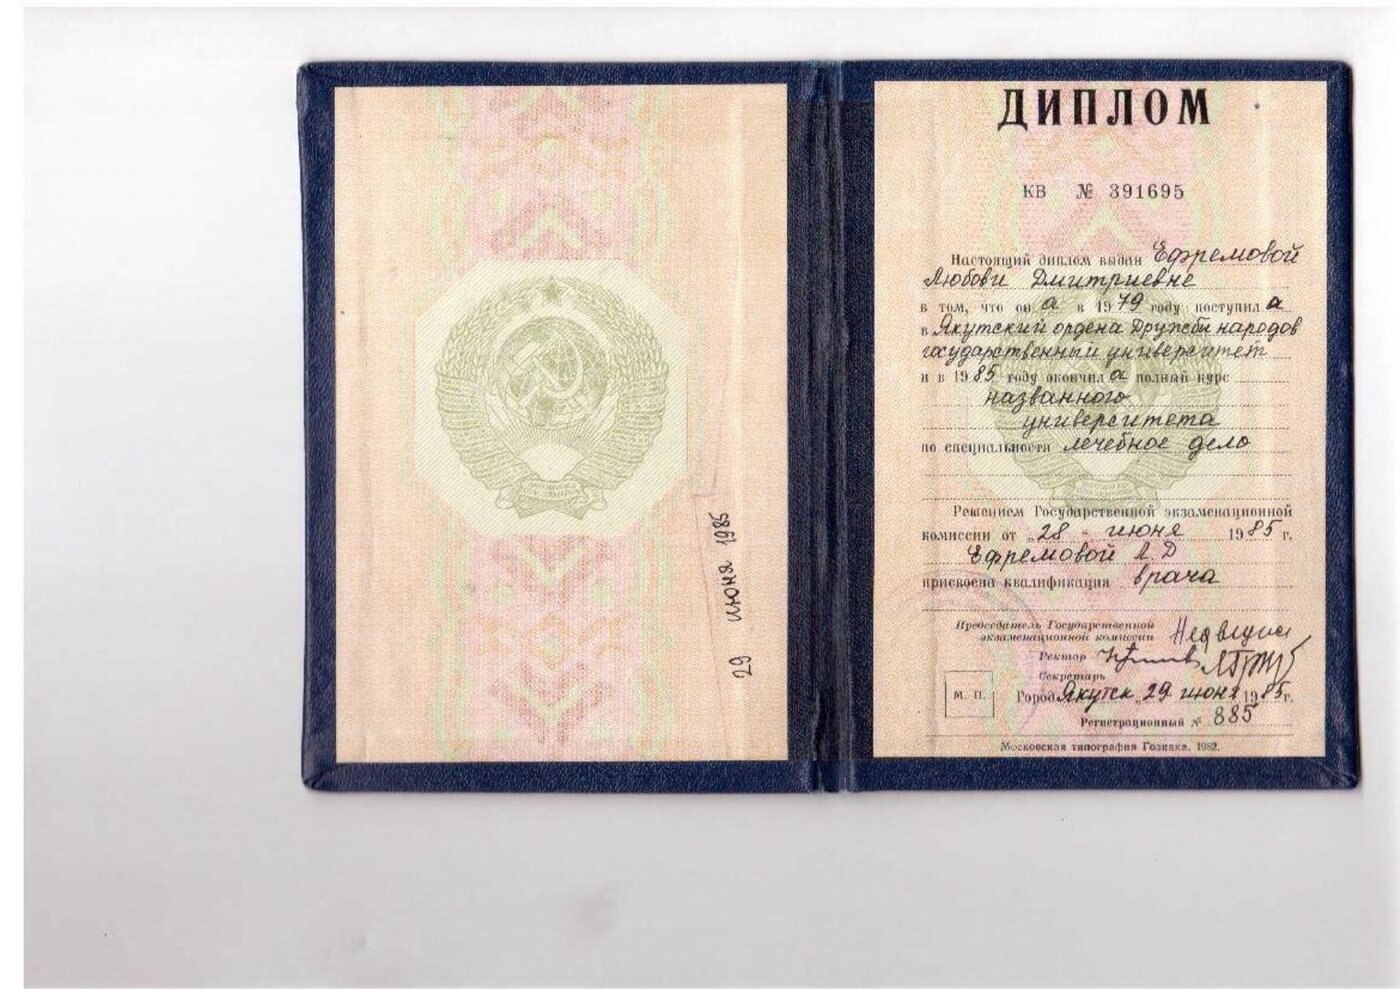 29 июня 1985
ДИПЛОМ
КВ № 391695
Настоящий диплом выдан Ефремовой
Любови Дмитриевне
в том, что он а в 1979 году поступил а
в Якутский ордена Дружбы народов
государственный университет
и в 1985 году окончил а полный курс
названного
университета
по специальности лечебное дело
Решением Государственной экзаменационной
комиссии от „28“ июня 1985 г.
Ефремовой Л.Д
присвоена квалификация врача
Председатель Государственной
экзаменационной комиссии
Ректор
Секретарь
М. П.
Город Якутск „29 июня 1985г.
Регистрационный № 885
Московская типография Гознака. 1982.